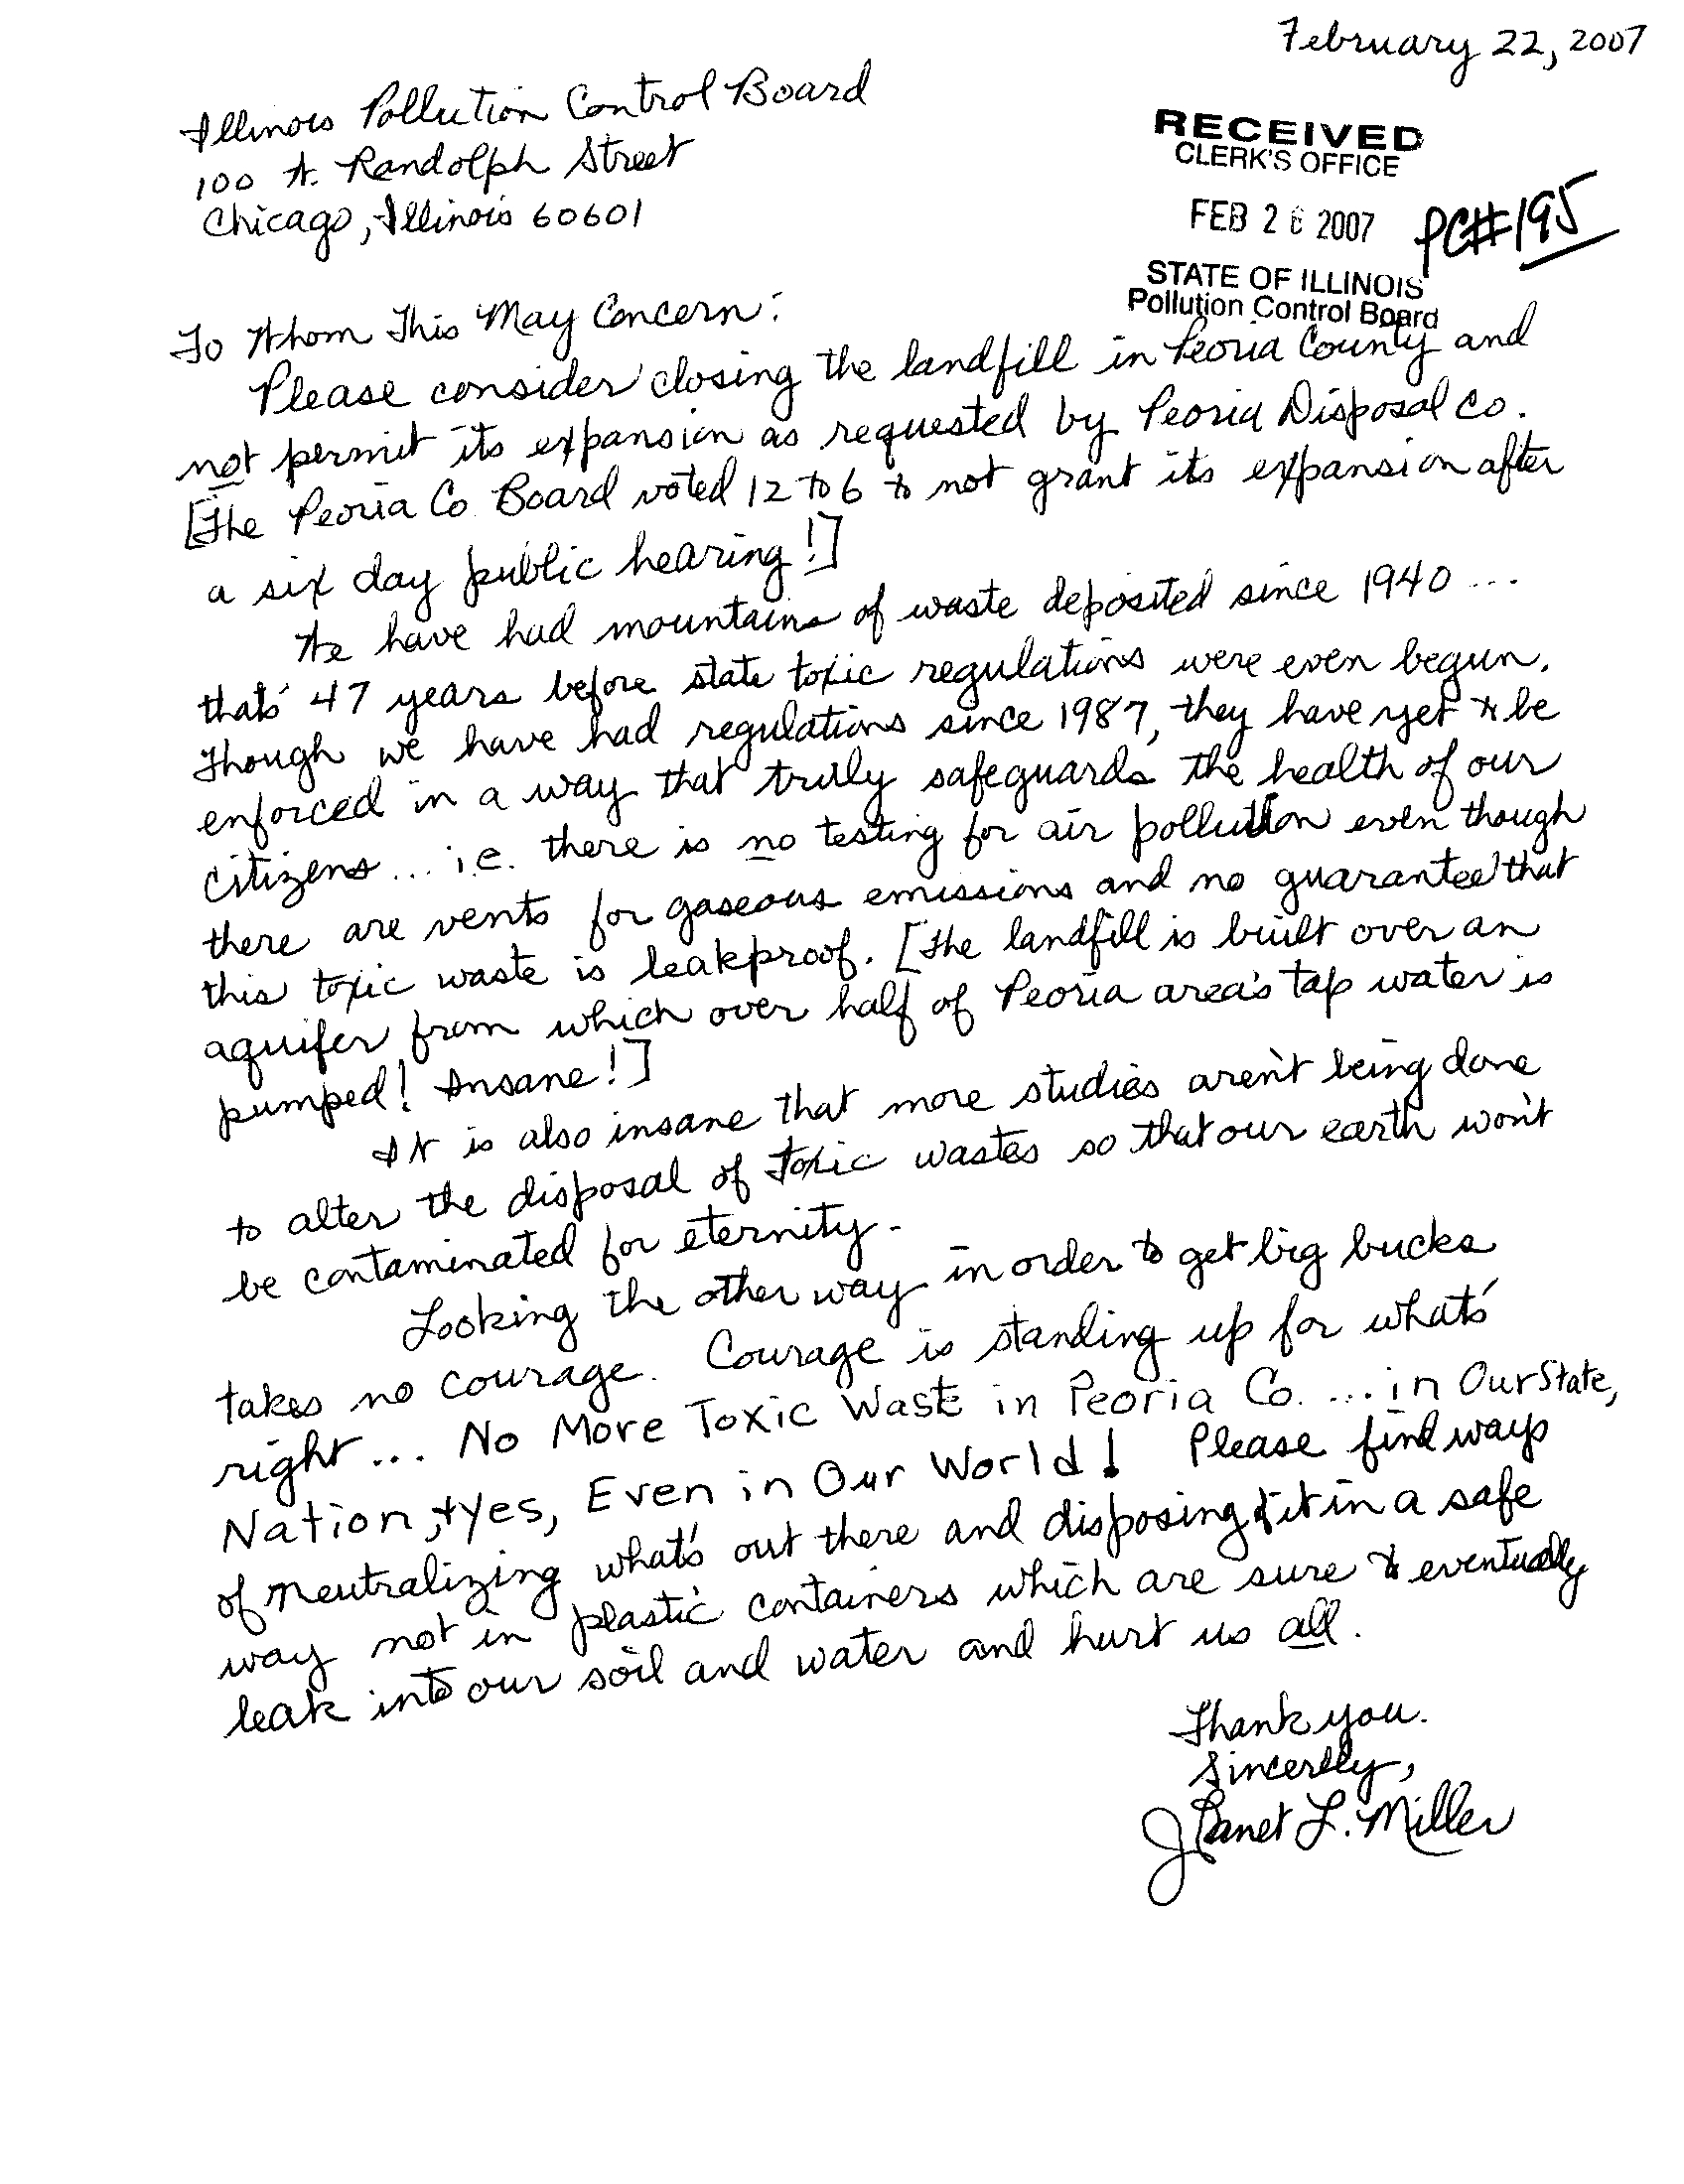 February 22, 2007
Illinois Pollution Control Board
100 W. Randolph Street
Chicago, Illinois 60601
RECEIVED
CLERK'S OFFICE
FEB 26 2007
PC#195
STATE OF ILLINOIS
Pollution Control Board
To Whom This May Concern:
Please consider closing the landfill in Peoria County and
not permit its expansion as requested by Peoria Disposal Co.
[The Peoria Co Board voted 12 to 6 to not grant its expansion after
a six day public hearing!]
We have had mountains of waste deposited since 1940 ...
that's 47 years before state toxic regulations were even begun.
Though we have had regulations since 1987, they have yet to be
enforced in a way that truly safeguards the health of our
citizens ... i.e. there is no testing for air pollution even though
there are vents for gaseous emissions and no guarantee that
this toxic waste is leakproof. [The landfill is built over an
aquifer from which over half of Peoria area's tap water is
pumped! Insane!]
It is also insane that more studies aren't being done
to alter the disposal of toxic wastes so that our earth won't
be contaminated for eternity.
Looking the other way in order to get big bucks
takes no courage. Courage is standing up for what's
right ... No More Toxic Waste in Peoria Co. ... in Our State,
Nation, + Yes, Even in Our World! Please find ways
of neutralizing what's out there and disposing of it in a safe
way not in plastic containers which are sure to eventually
leak into our soil and water and hurt us all.
Thank you.
Sincerely,
Janet L. Miller